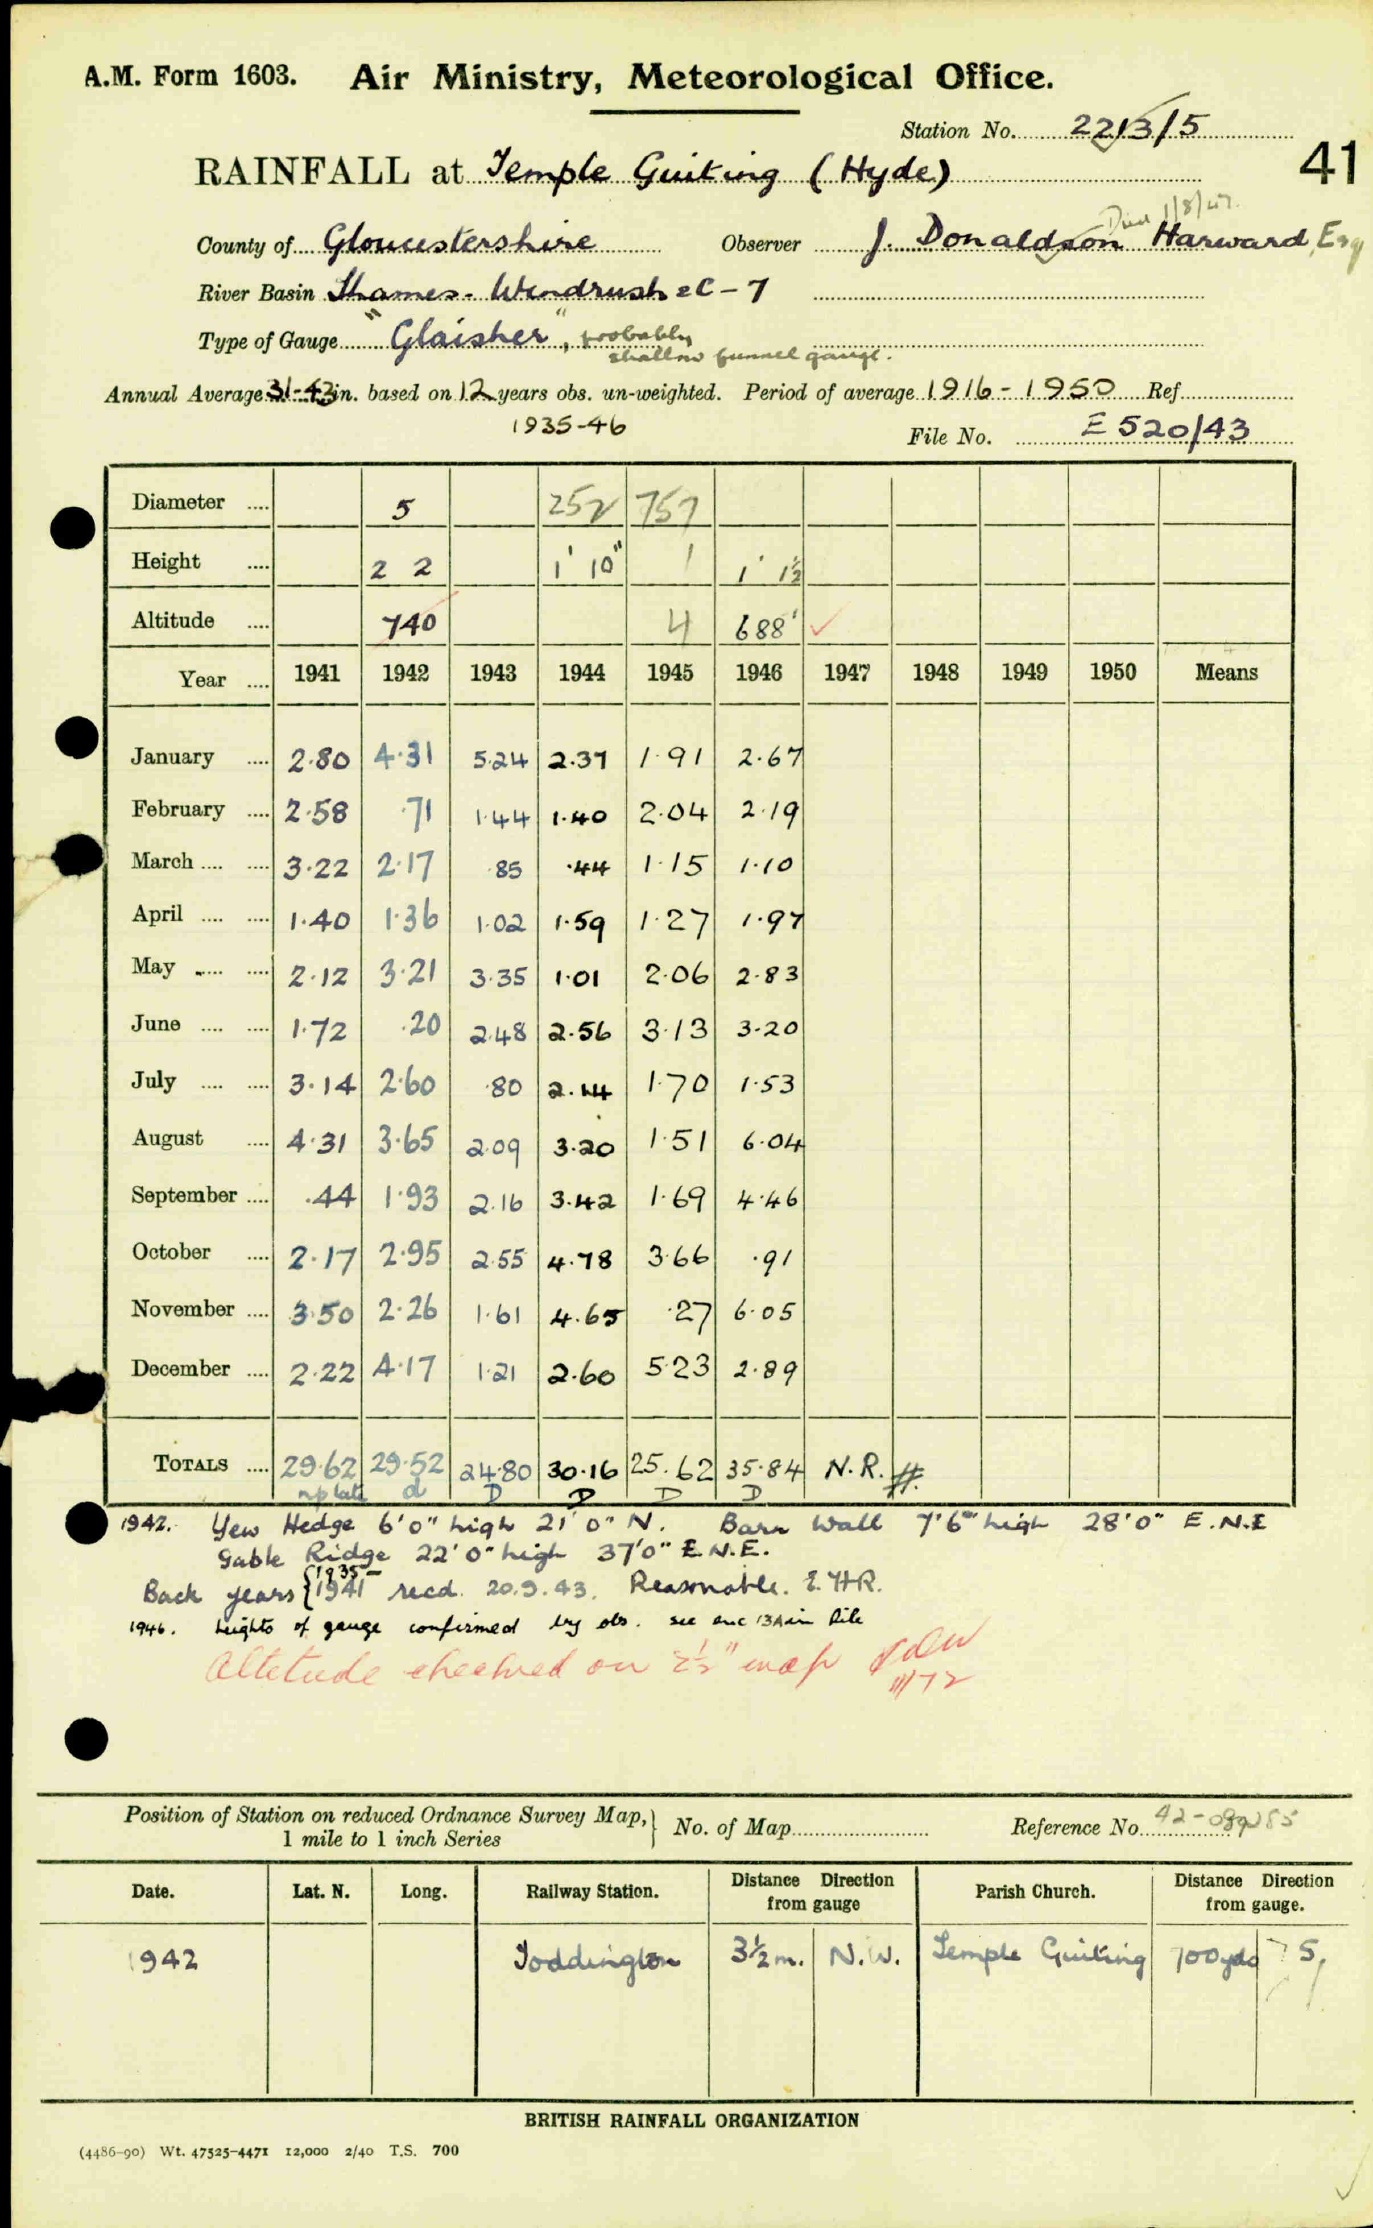 A.M. Form 1603. Air Ministry, Meteorological Office.
Station No. 2213/5
41
RAINFALL at Temple Guiting (Hyde)
Died 1/8/47.
County of Gloucestershire Observer J. Donaldson Harward, Esq
River Basin Thames - Windrush 2C - 7
Type of Gauge "Glaisher", probably
shallow funnel gauge.
Annual Average 31-43 in. based on 12 years obs. un-weighted. Period of average 1916 - 1950 Ref.
1935-46 File No. E 520/43
Diameter .... 5 252 757
Height .... 2 2 1' 10" 1 1' 1½
Altitude .... 740 4 688' ✓
Year .... 1941 1942 1943 1944 1945 1946 1947 1948 1949 1950 Means
January .... 2·80 4·31 5·24 2·37 1·91 2·67
February .... 2·58 ·71 1·44 1·40 2·04 2·19
March .... .... 3·22 2·17 ·85 ·44 1·15 1·10
April .... .... 1·40 1·36 1·02 1·59 1·27 1·97
May .... .... 2·12 3·21 3·35 1·01 2·06 2·83
June .... .... 1·72 ·20 2·48 2·56 3·13 3·20
July .... .... 3·14 2·60 ·80 2·14 1·70 1·53
August .... 4·31 3·65 2·09 3·20 1·51 6·04
September .... ·44 1·93 2·16 3·42 1·69 4·46
October .... 2·17 2·95 2·55 4·78 3·66 ·91
November .... 3·50 2·26 1·61 4·65 ·27 6·05
December .... 2·22 4·17 1·21 2·60 5·23 2·89
TOTALS .... 29·62 29·52 24·80 30·16 25·62 35·84 N.R.
late d D D D D
1942. Yew Hedge 6'0" high 21'0" N. Barn Wall 7'6" high 28'0" E.N.E
Gable Ridge 22'0" high 37'0" E.N.E.
Back years { 1935-
1941 recd. 20.9.43. Reasonable. E.H.R.
1946. heights of gauge confirmed by obs. see enc 13A in file
Altitude checked on 2½" map
11/72
Position of Station on reduced Ordnance Survey Map, } No. of Map Reference No. 42-
1 mile to 1 inch Series
Date. Lat. N. Long. Railway Station. Distance from gauge Direction Parish Church. Distance from gauge. Direction
1942 Toddington 3½ m. N.W. Temple Guiting 700 yds ? S,
BRITISH RAINFALL ORGANIZATION
(4486-90) Wt. 47525-4471 12,000 2/40 T.S. 700